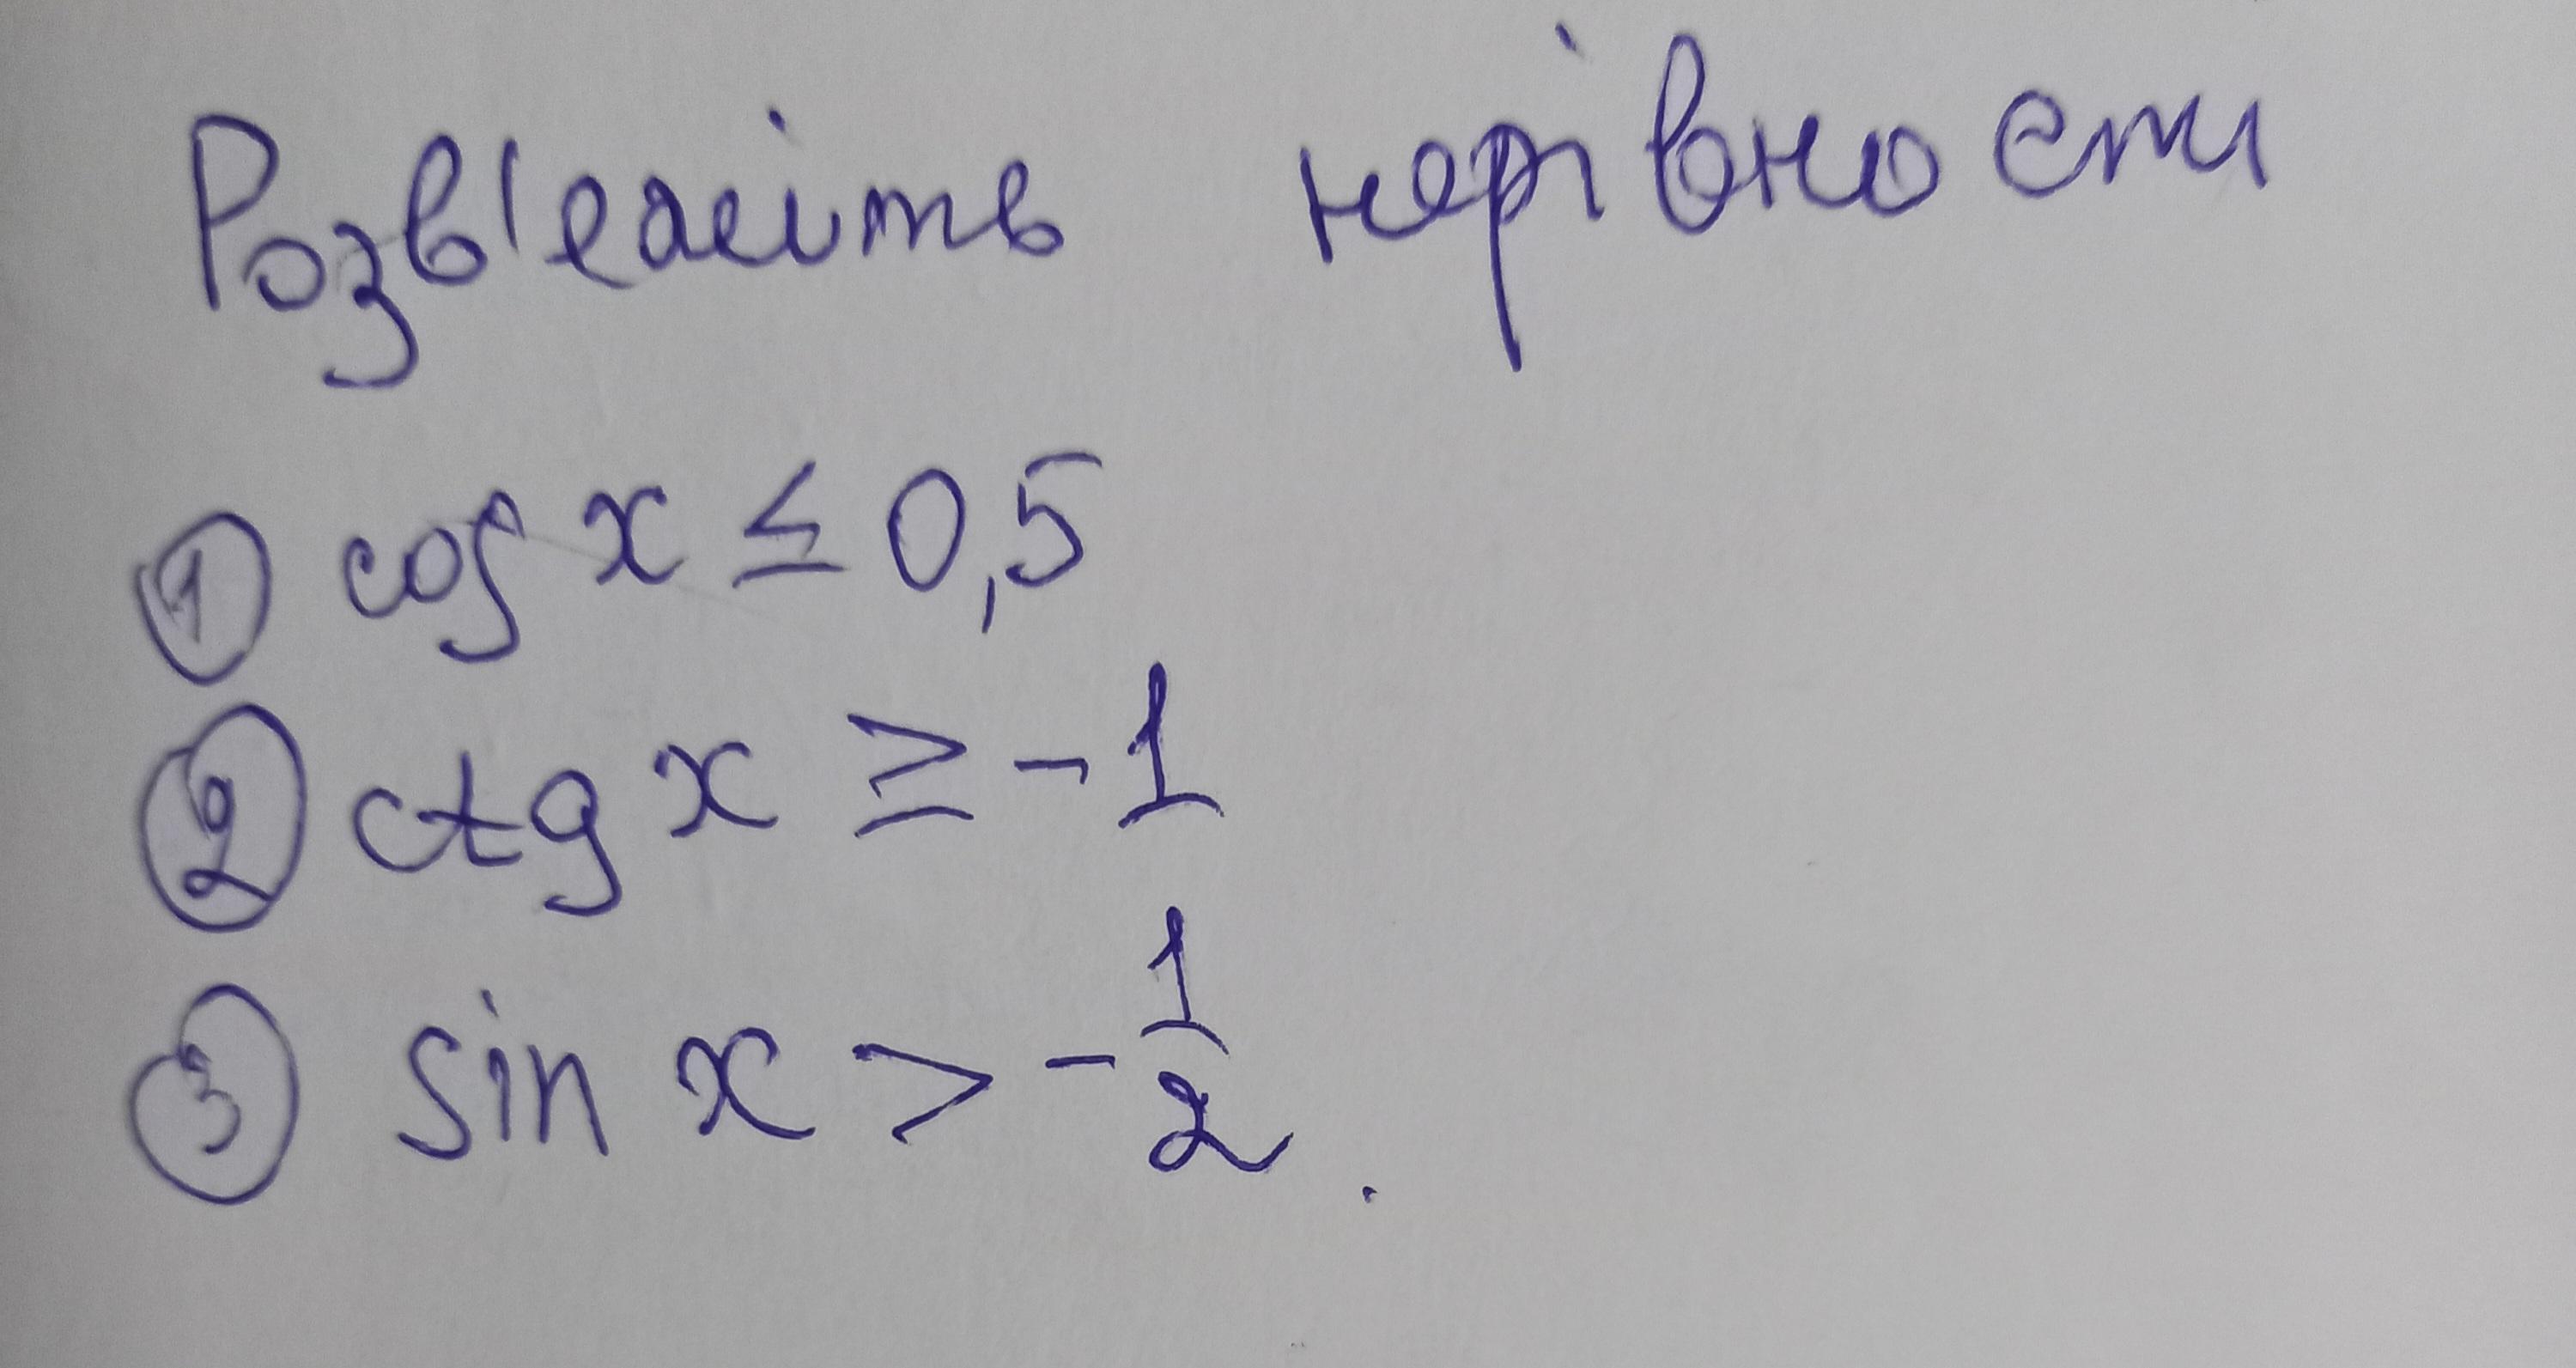 Розв'яжіть нерівності
① cos x ≤ 0,5
② ctg x ≥ -1
③ sin x > -1/2.